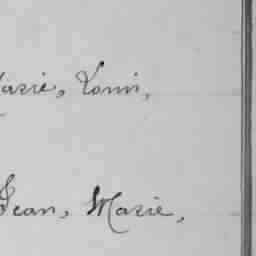 Marie, Louis,
Jean, Marie,